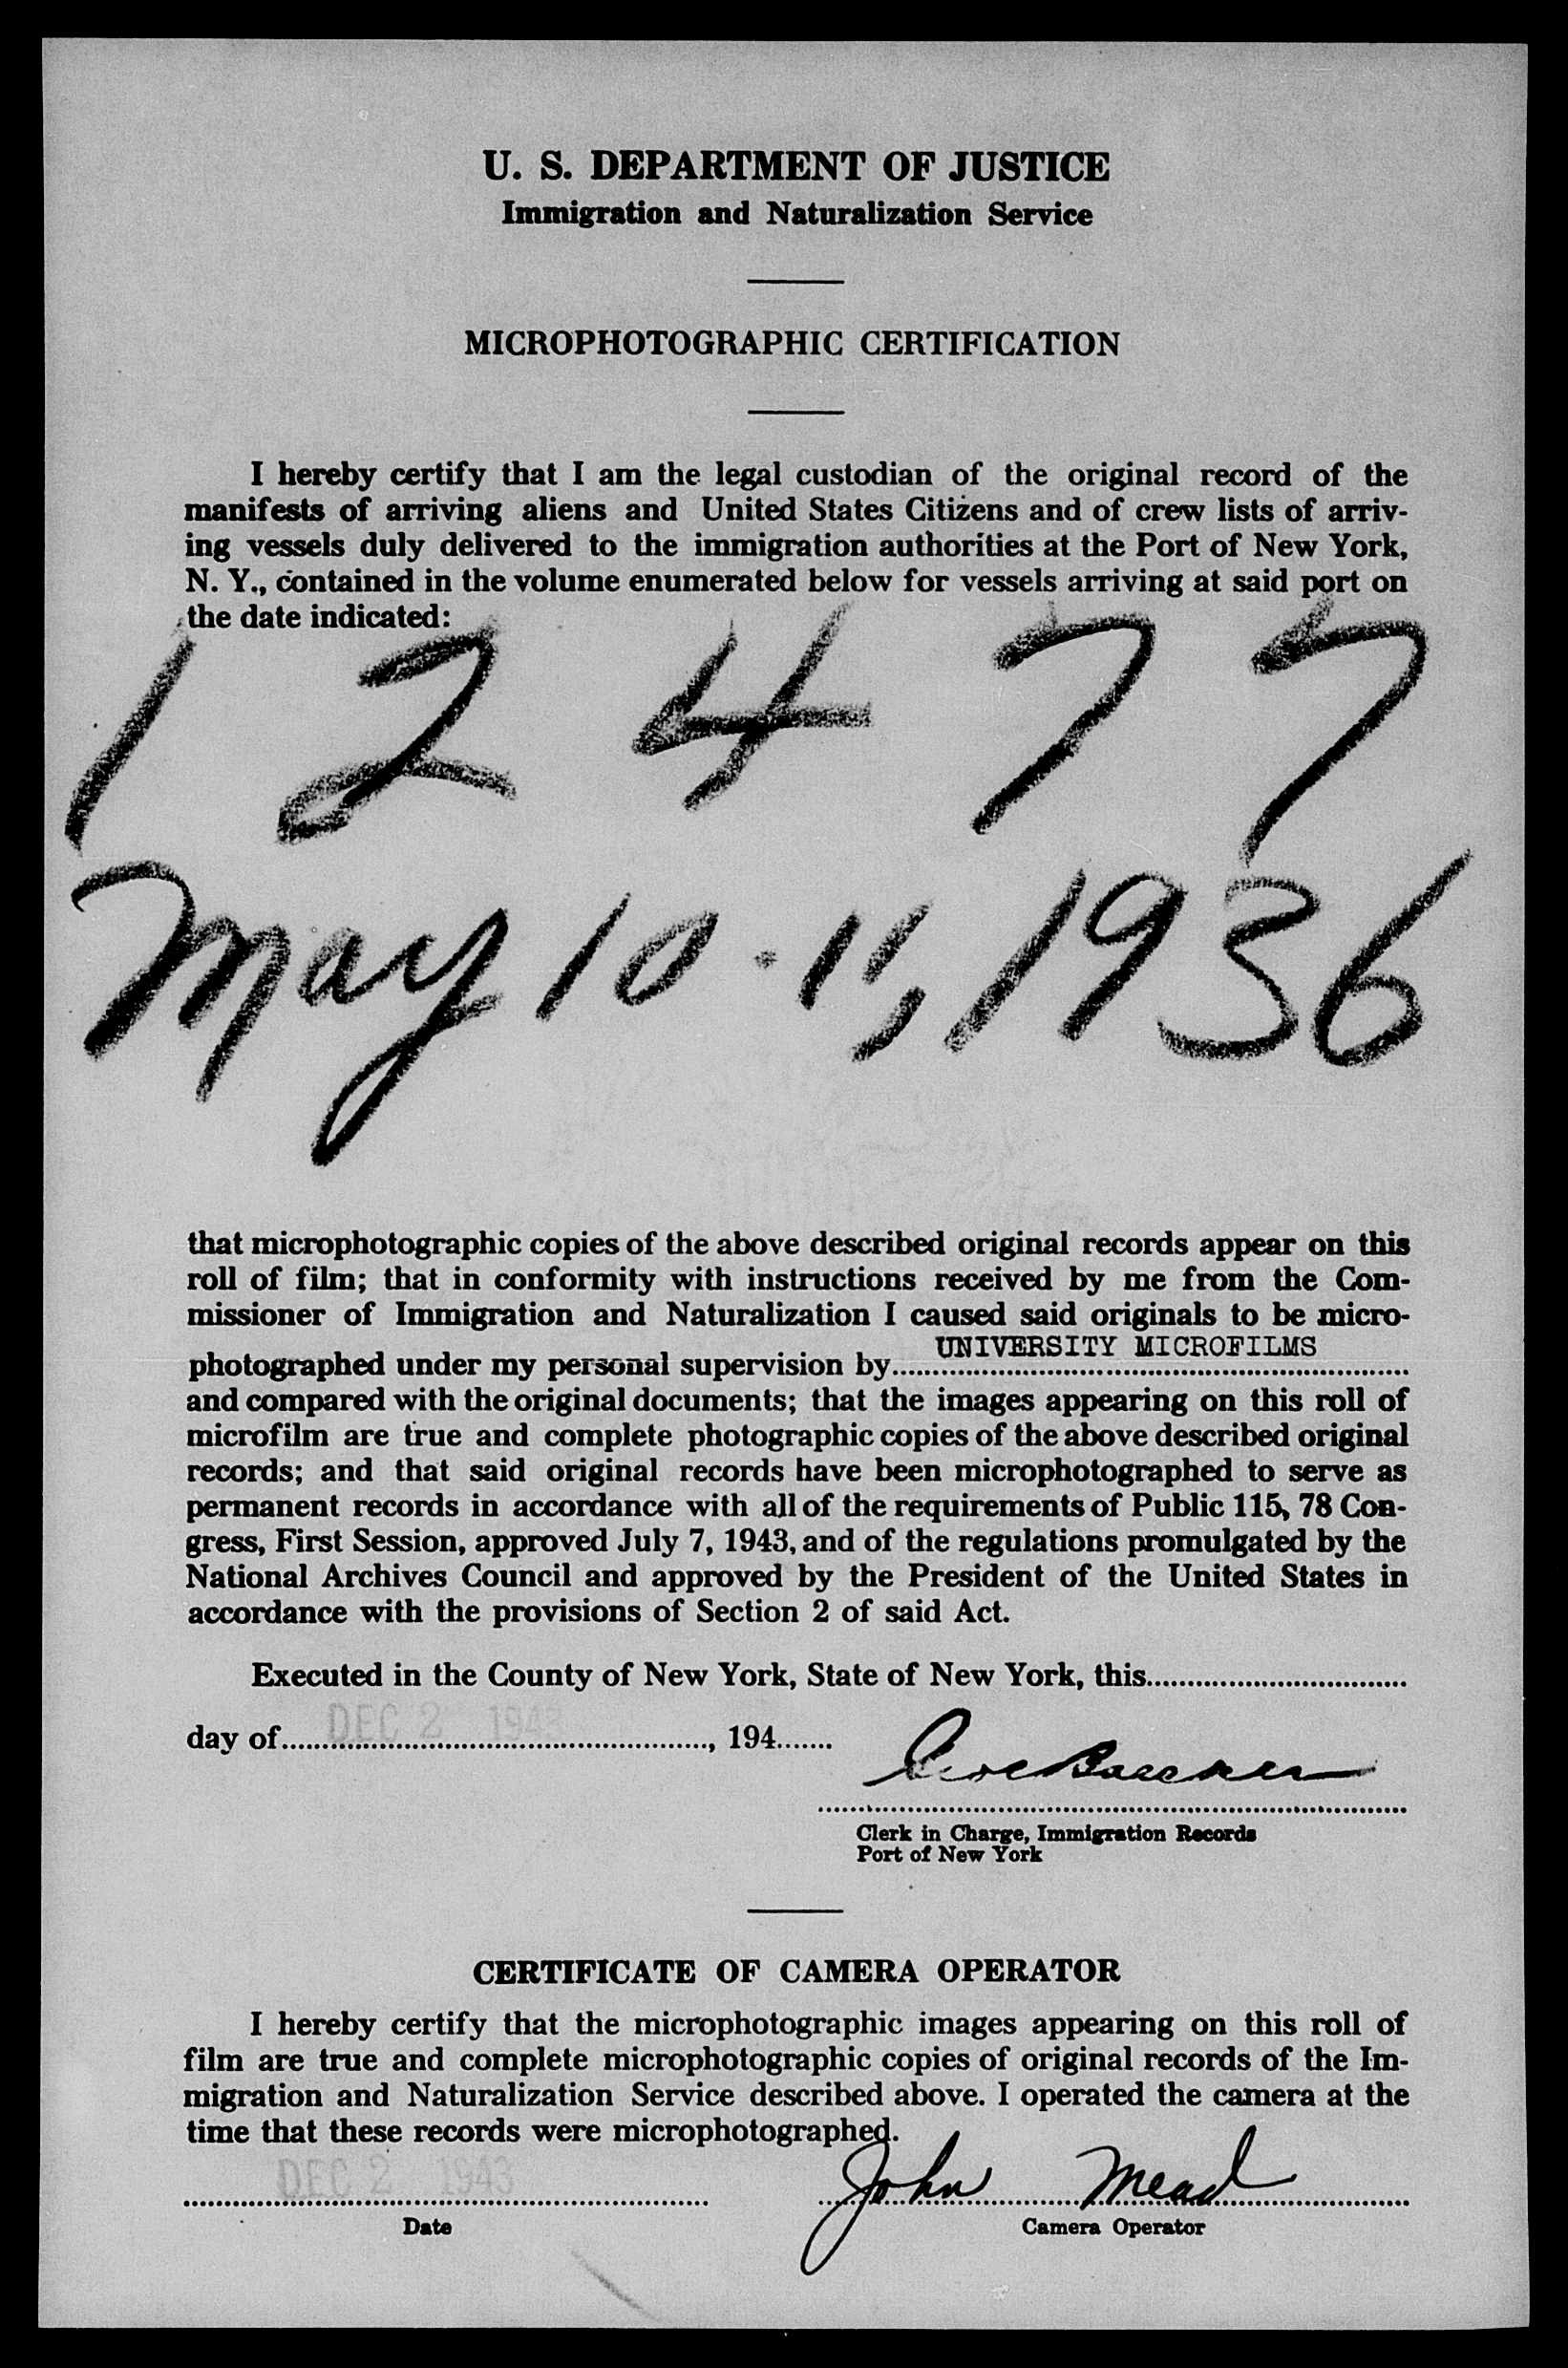 U. S. DEPARTMENT OF JUSTICE
Immigration and Naturalization Service
MICROPHOTOGRAPHIC CERTIFICATION
I hereby certify that I am the legal custodian of the original record of the
manifests of arriving aliens and United States Citizens and of crew lists of arriv-
ing vessels duly delivered to the immigration authorities at the Port of New York,
N. Y., contained in the volume enumerated below for vessels arriving at said port on
the date indicated:
1 2 4 7 7
May 10 - 11, 1936
that microphotographic copies of the above described original records appear on this
roll of film; that in conformity with instructions received by me from the Com-
missioner of Immigration and Naturalization I caused said originals to be micro-
photographed under my personal supervision by UNIVERSITY MICROFILMS
and compared with the original documents; that the images appearing on this roll of
microfilm are true and complete photographic copies of the above described original
records; and that said original records have been microphotographed to serve as
permanent records in accordance with all of the requirements of Public 115, 78 Con-
gress, First Session, approved July 7, 1943, and of the regulations promulgated by the
National Archives Council and approved by the President of the United States in
accordance with the provisions of Section 2 of said Act.
Executed in the County of New York, State of New York, this
day of DEC 2 1943, 194
Clerk in Charge, Immigration Records
Port of New York
CERTIFICATE OF CAMERA OPERATOR
I hereby certify that the microphotographic images appearing on this roll of
film are true and complete microphotographic copies of original records of the Im-
migration and Naturalization Service described above. I operated the camera at the
time that these records were microphotographed.
DEC 2 1943 John Mead
Date Camera Operator